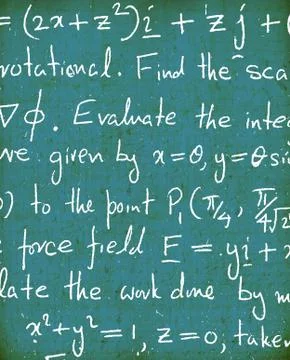 = (2x+z²)i + z j + (
rotational. Find the sca
∇φ. Evaluate the inte
ve given by x=θ, y=θ si
) to the point P₁(π/4, π/4√2
force field F = yi + x
late the work done by m
x²+y²=1, z=0, taken